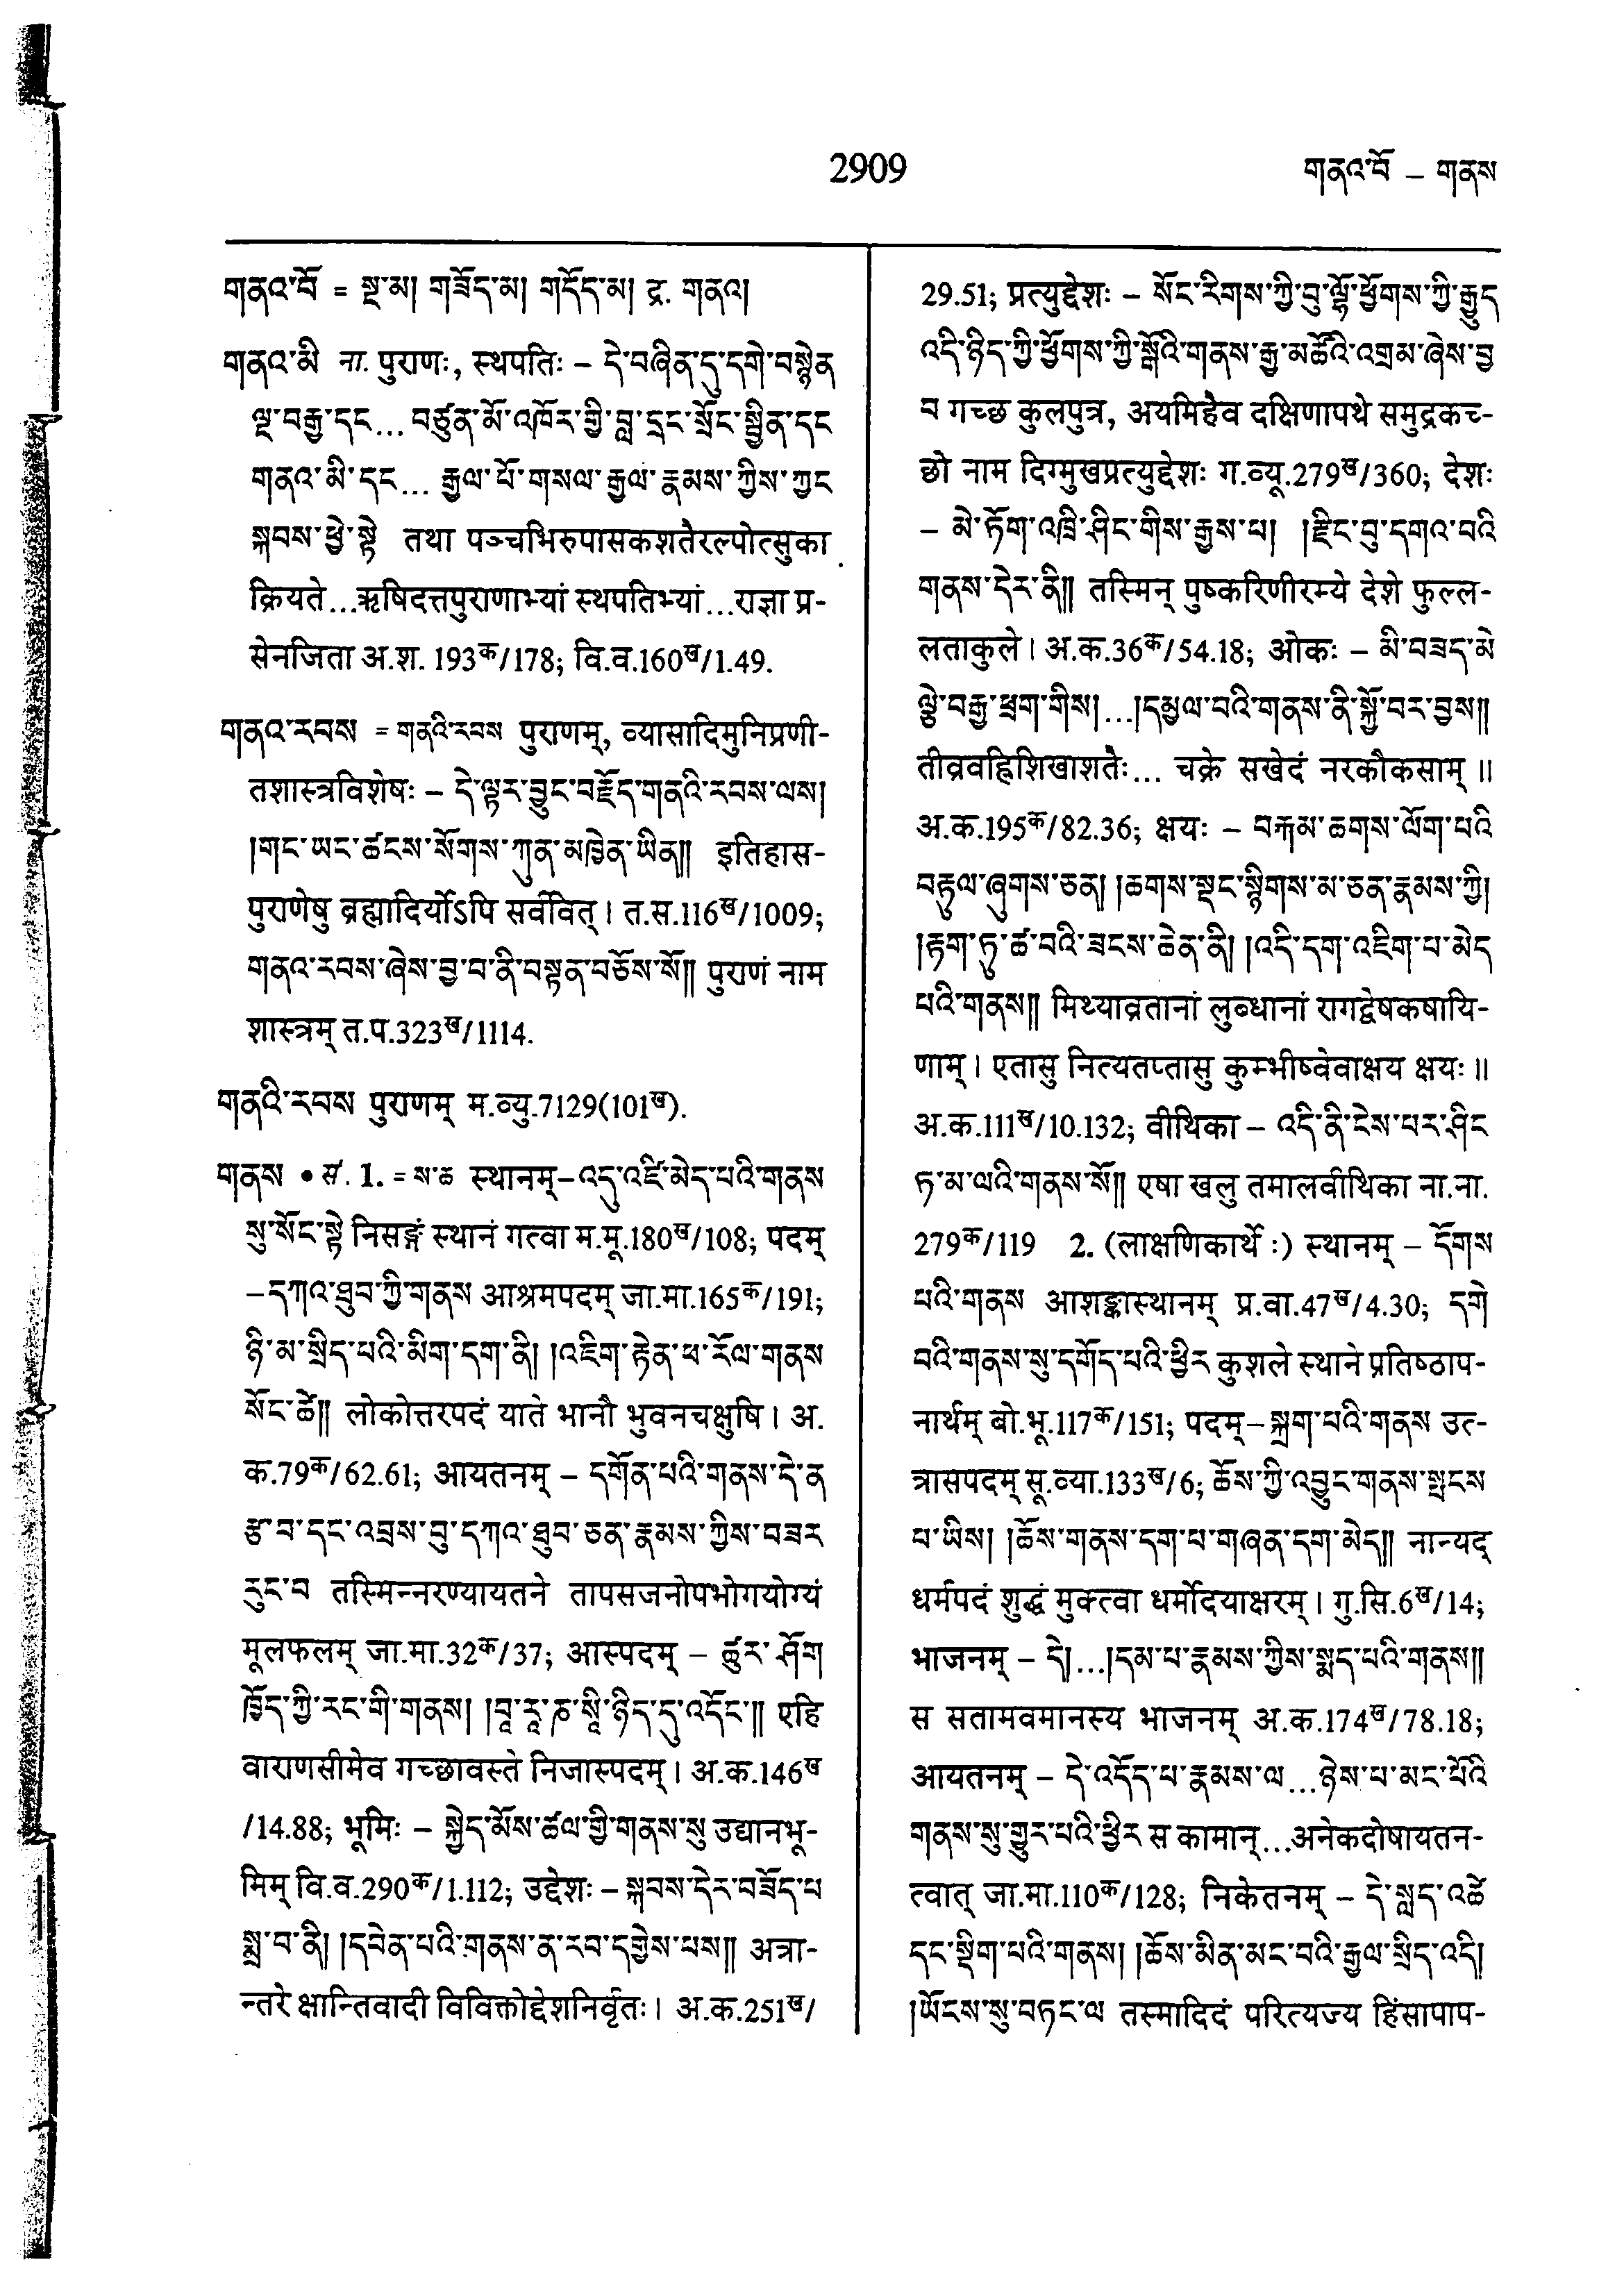 2909
གནའ་བོ – གནས
གནའ་བོ = སྔ་མ། གཟོད་མ། གདོད་མ། द्र. གནའ།
གནའ་མི ना. पुराणः, स्थपतिः – དེ་བཞིན་དུ་དགེ་བསྙེན
ལྔ་བརྒྱ་དང... བཙུན་མོ་འཁོར་གྱི་བླ་དྲང་སྲོང་སྦྱིན་དང
གནའ་མི་དང... རྒྱལ་པོ་གསལ་རྒྱལ་རྣམས་ཀྱིས་ཀྱང
སྐབས་ཕྱེ་སྟེ तथा पञ्चभिरुपासकशतैरल्पोत्सुका
क्रियते...ऋषिदत्तपुराणाभ्यां स्थपतिभ्यां...राज्ञा प्र-
सेनजिता अ.श. 193क/178; वि.व.160ख/1.49.
གནའ་རབས = གནའི་རབས पुराणम्, व्यासादिमुनिप्रणी-
तशास्त्रविशेषः – དེ་ལྟར་བྱུང་བརྗོད་གནའི་རབས་ལས།
།གང་ཡང་ཚངས་སོགས་ཀུན་མཁྱེན་ཡིན།། इतिहास-
पुराणेषु ब्रह्मादिर्योऽपि सर्ववित्। त.स.116ख/1009;
གནའ་རབས་ཞེས་བྱ་བ་ནི་བསྟན་བཅོས་སོ།། पुराणं नाम
शास्त्रम् त.प.323ख/1114.
གནའི་རབས पुराणम् म.व्यु.7129(101ख).
གནས • सं. 1. = ས་ཆ स्थानम्–འདུ་འཛི་མེད་པའི་གནས
སུ་སོང་སྟེ निसङ्गं स्थानं गत्वा म.मू.180ख/108; पदम्
–དཀའ་ཐུབ་ཀྱི་གནས आश्रमपदम् जा.मा.165क/191;
ཉི་མ་སྲིད་པའི་མིག་དག་ནི། །འཇིག་རྟེན་ཕ་རོལ་གནས
སོང་ཚེ།། लोकोत्तरपदं याते भानौ भुवनचक्षुषि। अ.
क.79क/62.61; आयतनम् – དགོན་པའི་གནས་དེ་ན
རྩ་བ་དང་འབྲས་བུ་དཀའ་ཐུབ་ཅན་རྣམས་ཀྱིས་བཟར
རུང་བ तस्मिन्नरण्यायतने तापसजनोपभोगयोग्यं
मूलफलम् जा.मा.32क/37; आस्पदम् – ཚུར་ཤོག
ཁྱོད་ཀྱི་རང་གི་གནས། །བཱ་རཱ་ཎ་སཱི་ཉིད་དུ་འདོང་།། एहि
वाराणसीमेव गच्छावस्ते निजास्पदम्। अ.क.146ख
/14.88; भूमिः – སྐྱེད་མོས་ཚལ་གྱི་གནས་སུ उद्यानभू-
मिम् वि.व.290क/1.112; उद्देशः – སྐབས་དེར་བཟོད་པ
སྨྲ་བ་ནི། །དབེན་པའི་གནས་ན་རབ་དགྱེས་པས།། अत्रा-
न्तरे क्षान्तिवादी विविक्तोद्देशनिर्वृतः। अ.क.251ख/
29.51; प्रत्युद्देशः – སོང་རིགས་ཀྱི་བུ་ལྷོ་ཕྱོགས་ཀྱི་རྒྱུད
འདི་ཉིད་ཀྱི་ཕྱོགས་ཀྱི་སྒོའི་གནས་རྒྱ་མཚོའི་འགྲམ་ཞེས་བྱ
བ गच्छ कुलपुत्र, अयमिहैव दक्षिणापथे समुद्रकच्-
छो नाम दिग्मुखप्रत्युद्देशः ग.व्यू.279ख/360; देशः
– མེ་ཏོག་འཁྲི་ཤིང་གིས་རྒྱས་པ། །རྫིང་བུ་དགའ་བའི
གནས་དེར་ནི།། तस्मिन् पुष्करिणीरम्ये देशे फुल्ल-
लताकुले। अ.क.36क/54.18; ओकः – མི་བཟད་མེ
ལྕེ་བརྒྱ་ཕྲག་གིས།...།དམྱལ་བའི་གནས་ནི་སྐྱོ་བར་བྱས།།
तीव्रवह्निशिखाशतैः... चक्रे सखेदं नरकौकसाम्॥
अ.क.195क/82.36; क्षयः – བརྐམ་ཆགས་ལོག་པའི
བརྟུལ་ཞུགས་ཅན། །ཆགས་སྡང་སྙིགས་མ་ཅན་རྣམས་ཀྱི།
།རྟག་ཏུ་ཚ་བའི་ཟངས་ཆེན་ནི། །འདི་དག་འཇིག་པ་མེད
པའི་གནས།། मिथ्याव्रतानां लुब्धानां रागद्वेषकषायि-
णाम्। एतासु नित्यतप्तासु कुम्भीष्वेवाक्षय क्षयः॥
अ.क.111ख/10.132; वीथिका – འདི་ནི་ངེས་པར་ཤིང
ཏ་མ་ལའི་གནས་སོ།། एषा खलु तमालवीथिका ना.ना.
279क/119 2. (लाक्षणिकार्थे :) स्थानम् – དོགས
པའི་གནས आशङ्कास्थानम् प्र.वा.47ख/4.30; དགེ
བའི་གནས་སུ་དགོད་པའི་ཕྱིར कुशले स्थाने प्रतिष्ठाप-
नार्थम् बो.भू.117क/151; पदम्–སྐྲག་པའི་གནས उत्-
त्रासपदम् सू.व्या.133ख/6; ཆོས་ཀྱི་འབྱུང་གནས་སྤངས
པ་ཡིས། །ཆོས་གནས་དག་པ་གཞན་དག་མེད།། नान्यद्
धर्मपदं शुद्धं मुक्त्वा धर्मोदयाक्षरम्। गु.सि.6ख/14;
भाजनम् – དེ།...།དམ་པ་རྣམས་ཀྱིས་སྨད་པའི་གནས།།
स सतामवमानस्य भाजनम् अ.क.174ख/78.18;
आयतनम् – དེ་འདོད་པ་རྣམས་ལ...ཉེས་པ་མང་པོའི
གནས་སུ་གྱུར་པའི་ཕྱིར स कामान्...अनेकदोषायतन-
त्वात् जा.मा.110क/128; निकेतनम् – དེ་སླད་འཚེ
དང་སྡིག་པའི་གནས། །ཆོས་མིན་མང་བའི་རྒྱལ་སྲིད་འདི།
།ཡོངས་སུ་བཏང་ལ तस्मादिदं परित्यज्य हिंसापाप-